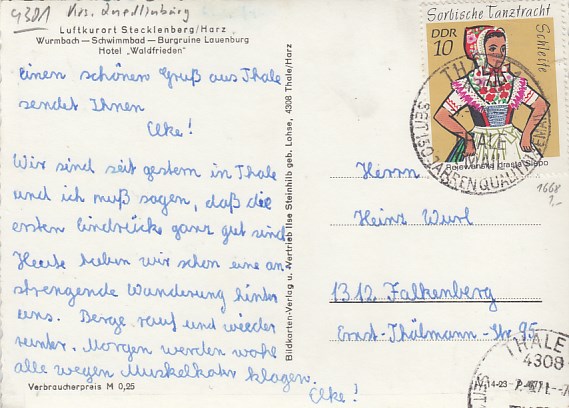 4301 Krs. Quedlinburg
Luftkurort Stecklenberg/Harz
Wurmbach — Schwimmbad — Burgruine Lauenburg
Hotel „Waldfrieden"
einen schönen Gruß aus Thale
sendet Ihnen
Elke!
Wir sind seit gestern in Thale
und ich muß sagen, daß die
ersten Eindrücke ganz gut sind
Heute haben wir schon eine an
strengende Wanderung hinter
uns. Berge rauf und wieder
runter. Morgen werden wohl
alle wegen Muskelkater klagen.
Elke!
Verbraucherpreis M 0,25
Bildkarten-Verlag u. Vertrieb Ilse Steinhilb geb. Lohse, 4308 Thale/Harz
Sorbische Tanztracht
DDR
10
Schleife
Rejewanska drasta Slepo
THALE
THALE
SEIT 150 JAHREN QUALITÄT
1668
1,-
Herrn
Heinz Wurl
1312 Falkenberg
Ernst-Thälmann-Str 95
THALE
4308
14-23